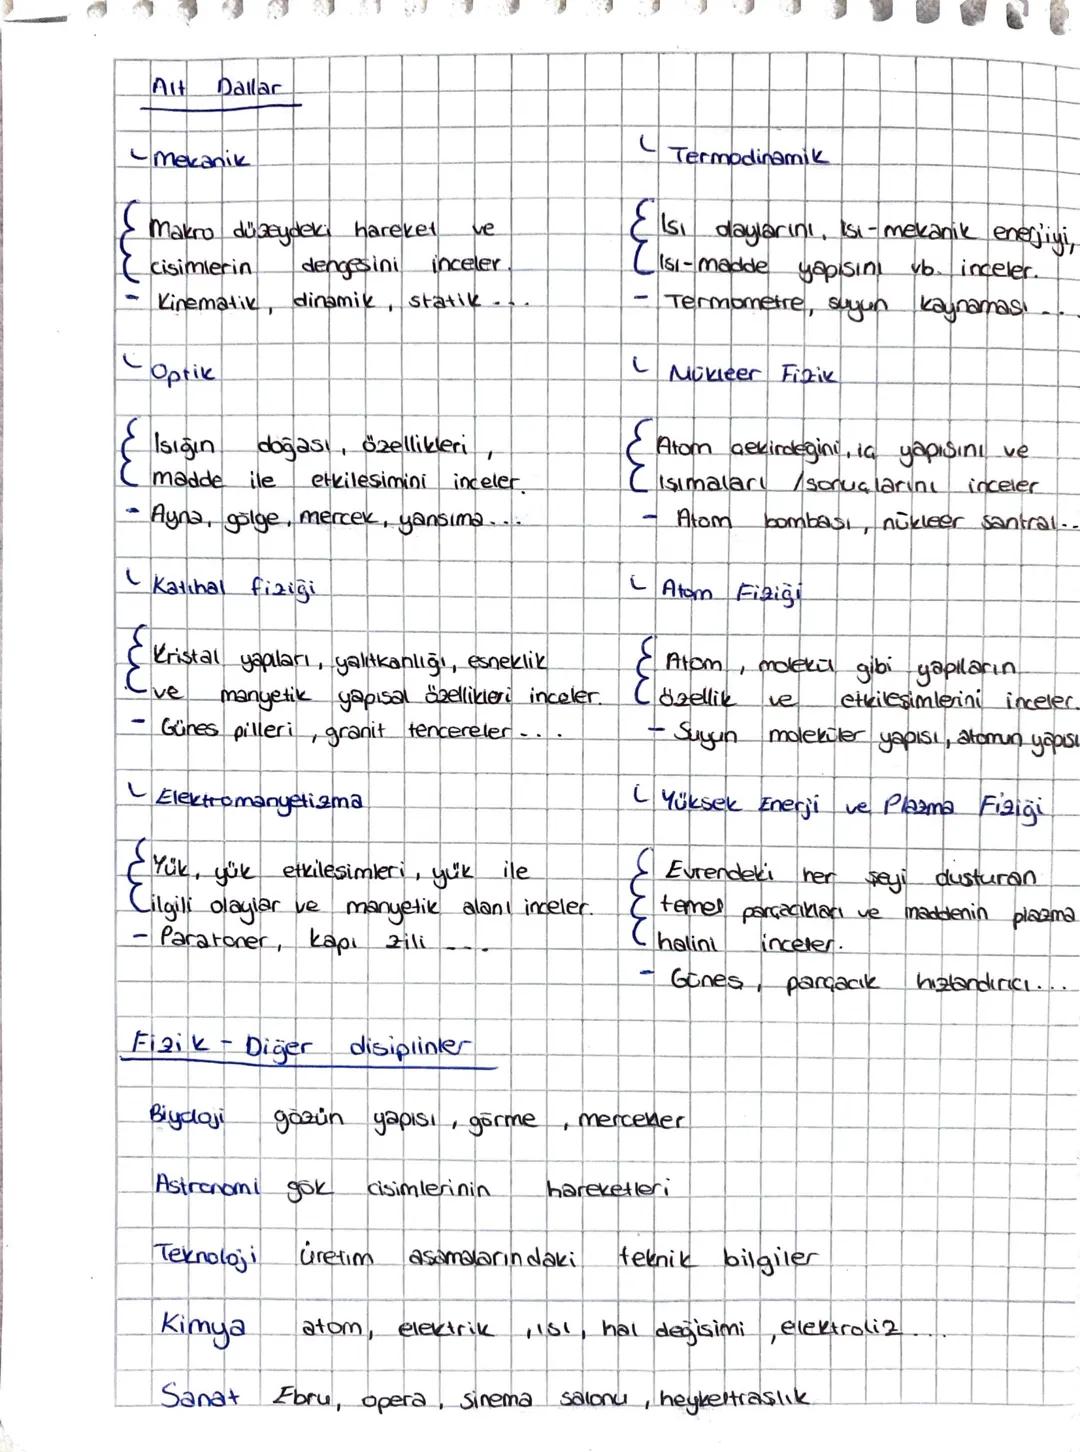 Alt Dallar
Mekanik
Makro düzeydeki hareket ve
cisimlerin dengesini inceler.
- Kinematik, dinamik, statik ...
Termodinamik
Isı olaylarını, Isı-mekanik enerjiyi,
Isı-madde yapısını vb. inceler.
- Termometre, suyun kaynaması ...
Optik
Işığın doğası, özellikleri,
madde ile etkileşimini inceler.
- Ayna, gölge, mercek, yansıma...
Nükleer Fizik
Atom çekirdeğini, iç yapısını ve
ışımaları /sonuçlarını inceler
- Atom bombası, nükleer santral..
Katıhal fiziği
Kristal yapıları, yalıtkanlığı, esneklik
ve manyetik yapısal özellikleri inceler.
- Güneş pilleri, granit tencereler ...
Atom Fiziği
Atom, molekül gibi yapıların
özellik ve etkileşimlerini inceler.
- Suyun moleküler yapısı, atomun yapısı
Elektromanyetizma
Yük, yük etkileşimleri, yük ile
ilgili olaylar ve manyetik alanı inceler.
- Paratoner, kapı zili ...
Yüksek Enerji ve Plazma Fiziği
Evrendeki her şeyi oluşturan
temel parçacıkları ve maddenin plazma
halini inceler.
- Güneş, parçacık hızlandırıcı...
Fizik - Diğer disiplinler
Biyoloji gözün yapısı, görme, mercekler
Astronomi gök cisimlerinin hareketleri
Teknoloji üretim aşamalarındaki teknik bilgiler
Kimya atom, elektrik, ısı, hal değişimi, elektroliz ...
Sanat Ebru, opera, sinema salonu, heykeltraşlık